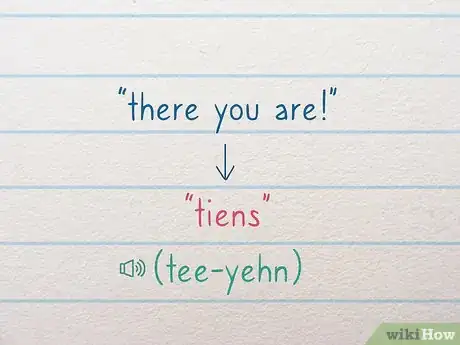 "there you are!"
"tiens"
(tee-yehn)
wikiHow